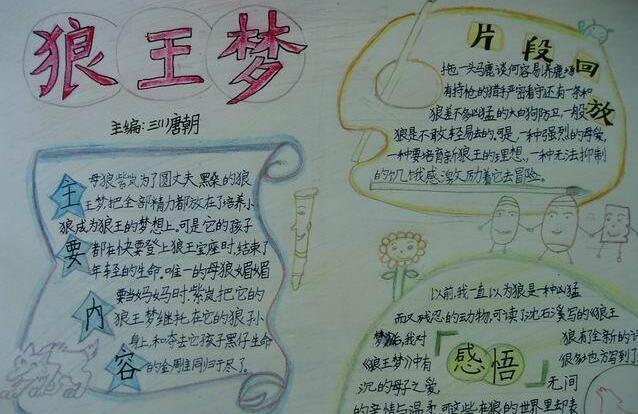 狼王梦
主编:三川唐朝
主要内容
母狼紫岚为了圆丈夫黑桑的狼
王梦把全部精力都放在了培养小
狼成为狼王的梦想上,可是它的孩子
都在快要登上狼王宝座时,结束了
年轻的生命。唯一的母狼媚媚
要当妈妈时,紫岚把它的
狼王梦继托在它的狼孙
身上,和夺去它孩子黑仔生命
的金雕同归于尽了。
片段回放
拖一头马鹿谈何容易,养鹿场
有持枪的猎手严密看守还有一条和
狼差不多凶猛的大白狗防卫,一般
狼是不敢轻易去的,可是,一种强烈的母爱,
一种要培育新狼王的理想,一种无法抑制
的饥饿感激励着它去冒险。
感悟
以前,我一直以为狼是一种凶猛
而又残忍的动物,可读了沈石溪写的《狼王
梦》后,我对
狼有全新的
《狼王梦》中有
很多也方写到了
沉的母子之爱,
无间
的亲情与温柔,可这些在狼的世界里却表